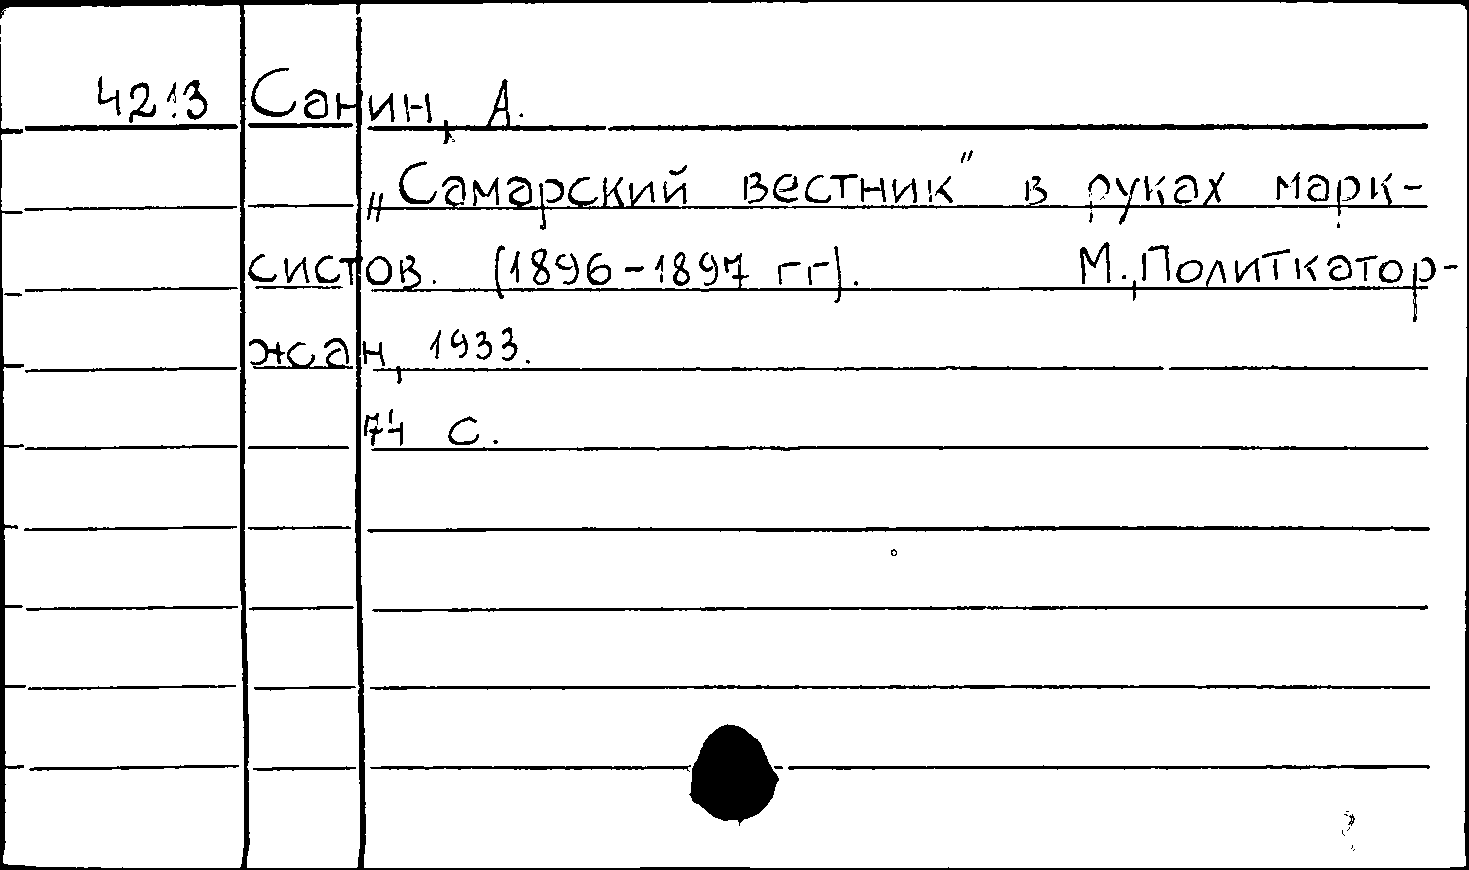 4213 Санин, А.
„Самарский вестник" в руках марк-
систов. (1896-1897 гг). М., Политкатор-
жан, 1933.
74 с.